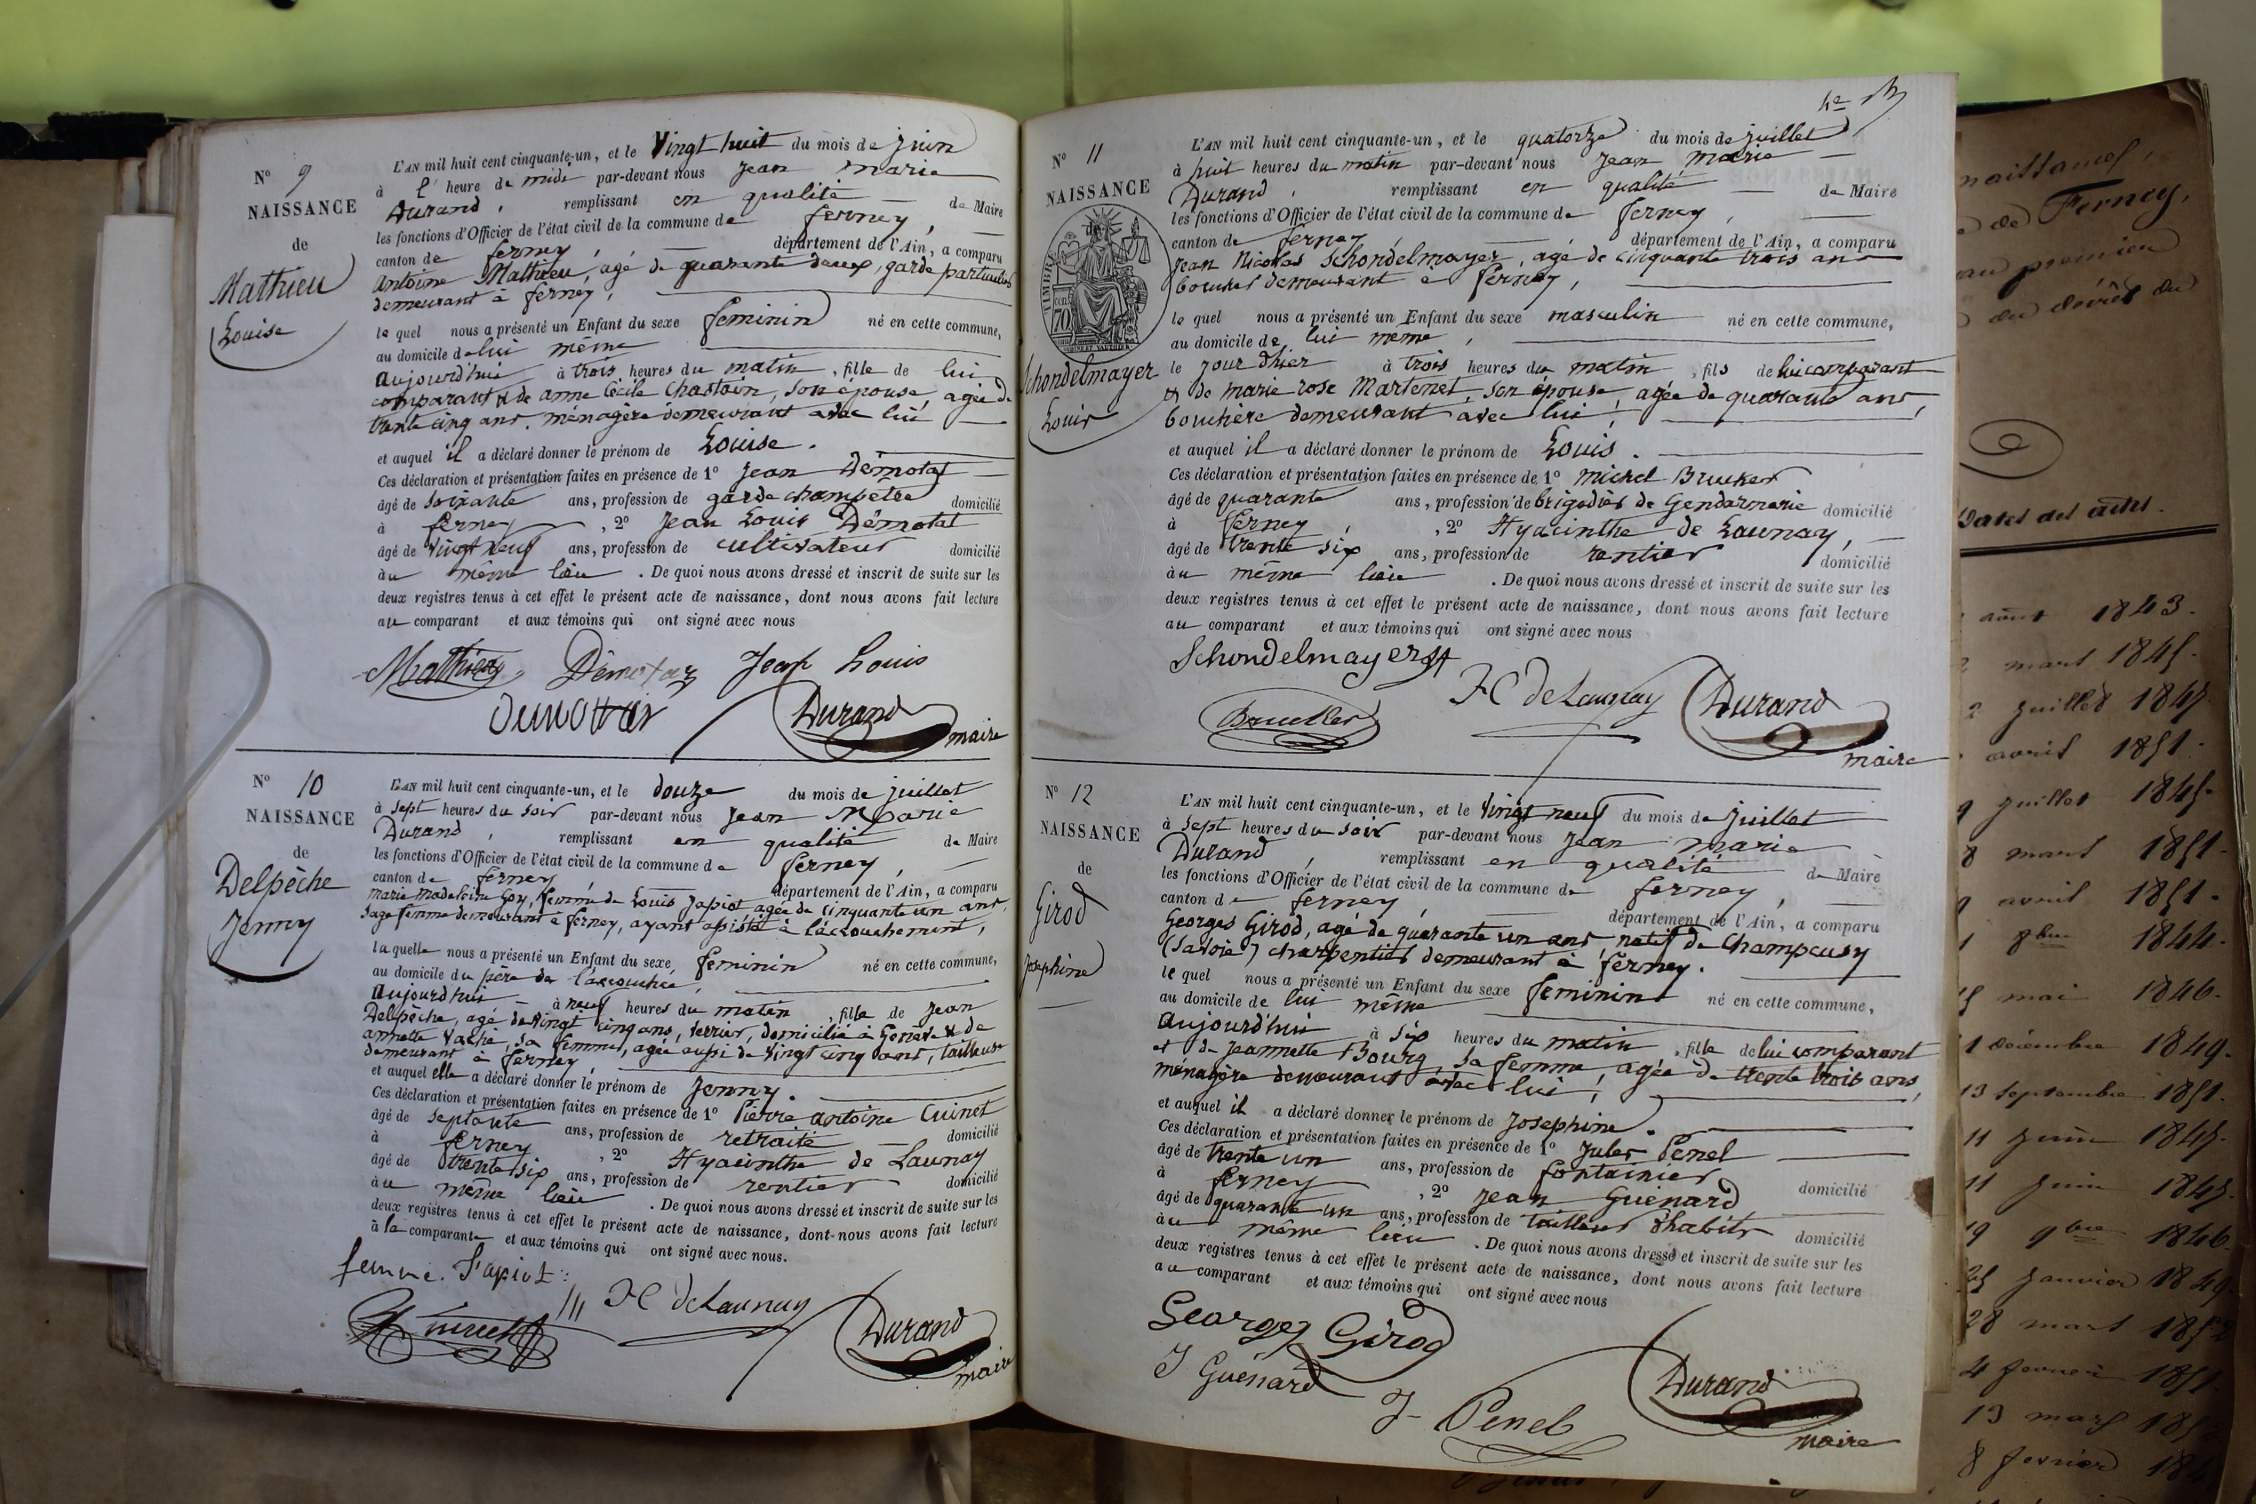 N° 9
NAISSANCE
de
Mathieu
Louise
L'AN mil huit cent cinquante-un, et le Vingt huit du mois de juin
à l' heure de midi par-devant nous Jean Marie
Durand, remplissant en qualité de Maire
les fonctions d'Officier de l'état civil de la commune de ferney,
canton de ferney, département de l'Ain, a comparu
Antoine Mathieu, agé de quarante deux, garde particulier
demeurant à ferney,
le quel nous a présenté un Enfant du sexe feminin né en cette commune,
au domicile de lui même
aujourd'hui à trois heures du matin, fille de lui
comparant & de anne Cécile Chastain, son épouse, agée de
trente cinq ans, ménagère demeurant avec lui
et auquel il a déclaré donner le prénom de Louise.
Ces déclaration et présentation faites en présence de 1° Jean Démotat
âgé de soixante ans, profession de garde champêtre domicilié
à ferney, 2° Jean Louis Démotat
âgé de vingt neuf ans, profession de cultivateur domicilié
au même lieu. De quoi nous avons dressé et inscrit de suite sur les
deux registres tenus à cet effet le présent acte de naissance, dont nous avons fait lecture
au comparant et aux témoins qui ont signé avec nous
Mathieu Jean Louis
Durand
maire
N° 10
NAISSANCE
de
Delpêche
Jenny
L'AN mil huit cent cinquante-un, et le douze du mois de juillet
à sept heures du soir par-devant nous Jean Marie
Durand, remplissant en qualité de Maire
les fonctions d'Officier de l'état civil de la commune de ferney,
canton de ferney département de l'Ain, a comparu
marie madeleine Goy, femme de Louis Japiot agée de cinquante un ans,
sage femme demeurant à ferney, ayant assisté à l'accouchement,
laquelle nous a présenté un Enfant du sexe feminin né en cette commune,
au domicile du père de l'accouchée,
aujourd'hui à neuf heures du matin, fille de Jean
Delpêche, agé de vingt cinq ans, domicilié à Genève & de
annette sa femme, agée aussi de vingt cinq ans, tailleuse
demeurant à ferney,
et auquel elle a déclaré donner le prénom de Jenny.
Ces déclaration et présentation faites en présence de 1° Pierre antoine Cuinet
âgé de septante ans, profession de retraité domicilié
à ferney, 2° Hyacinthe de Launay
âgé de trente six ans, profession de rentier domicilié
au même lieu. De quoi nous avons dressé et inscrit de suite sur les
deux registres tenus à cet effet le présent acte de naissance, dont nous avons fait lecture
à la comparante et aux témoins qui ont signé avec nous.
femme Japiot
Cuinet H deLaunay
Durand
maire
N° 11
NAISSANCE
TIMBRE
70
Schondelmayer
Louis
L'AN mil huit cent cinquante-un, et le quatorze du mois de juillet
à huit heures du matin par-devant nous Jean Marie
Durand, remplissant en qualité de Maire
les fonctions d'Officier de l'état civil de la commune de ferney,
canton de ferney, département de l'Ain, a comparu
Jean Nicolas Schondelmayer, agé de cinquante trois ans
boucher demeurant à ferney,
le quel nous a présenté un Enfant du sexe masculin né en cette commune,
au domicile de lui même,
le jour d'hier à trois heures du matin, fils de lui comparant
& de marie rose Martenet, son épouse, agée de quarante ans,
bouchère demeurant avec lui,
et auquel il a déclaré donner le prénom de Louis.
Ces déclaration et présentation faites en présence de 1° michel Brucker
âgé de quarante ans, profession de brigadier de Gendarmerie domicilié
à ferney, 2° Hyacinthe de Launay,
âgé de trente six ans, profession de rentier domicilié
au même lieu. De quoi nous avons dressé et inscrit de suite sur les
deux registres tenus à cet effet le présent acte de naissance, dont nous avons fait lecture
au comparant et aux témoins qui ont signé avec nous
Schondelmayer
H deLaunay Durand
maire
N° 12
NAISSANCE
de
Girod
Josephine
L'AN mil huit cent cinquante-un, et le Vingt neuf du mois de juillet
à sept heures du soir par-devant nous Jean Marie
Durand, remplissant en qualité de Maire
les fonctions d'Officier de l'état civil de la commune de ferney,
canton de ferney, département de l'Ain, a comparu
Georges Girod, agé de quarante un ans, natif de
(Savoie) charpentier demeurant à ferney.
le quel nous a présenté un Enfant du sexe feminin né en cette commune,
au domicile de lui même
aujourd'hui à six heures du matin, fille de lui comparant
et de Jeannette Bourg, sa femme, agée de trente trois ans,
ménagère demeurant avec lui,
et auquel il a déclaré donner le prénom de Josephine.
Ces déclaration et présentation faites en présence de 1° Jules Penel
âgé de trente un ans, profession de fontainier domicilié
à ferney, 2° Jean Guénard
âgé de quarante un ans, profession de tailleur d'habits domicilié
au même lieu. De quoi nous avons dressé et inscrit de suite sur les
deux registres tenus à cet effet le présent acte de naissance, dont nous avons fait lecture
au comparant et aux témoins qui ont signé avec nous
Georges Girod
J Guénard
J Penel
Durand
maire
naissances,
de Ferney,
au premier
du décret du
Dates des actes.
août 1843.
mars 1845.
juillet 1847.
avril 1851.
juillet 1845.
8 mars 1851.
avril 1851.
8bre 1844.
mai 1846.
décembre 1849.
13 septembre 1851.
11 juin 1845.
11 juin 1845.
19 9bre 1846.
janvier 1849.
28 mars 1852
4 fevrier 1851.
13 mars
8 fevrier